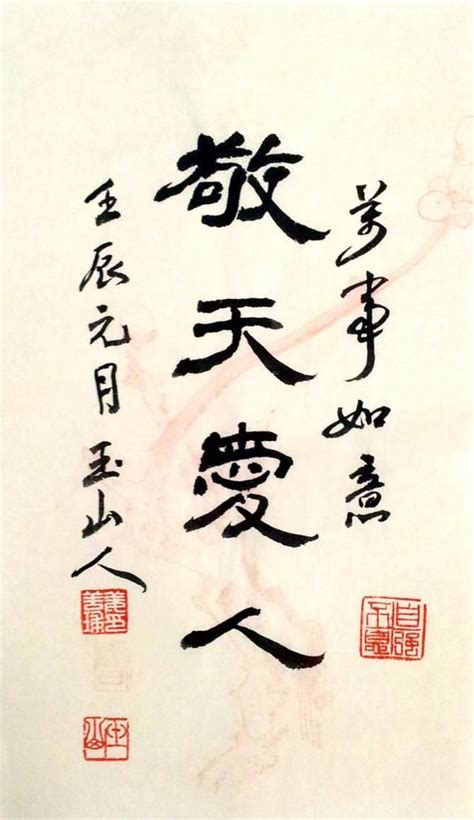 萬事如意
自强不息
敬天愛人
壬辰元月玉山人
玉山